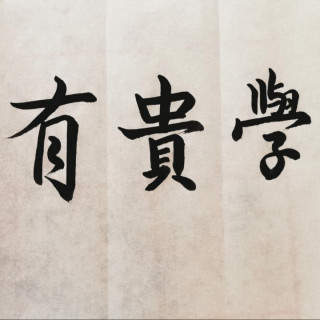 學貴有